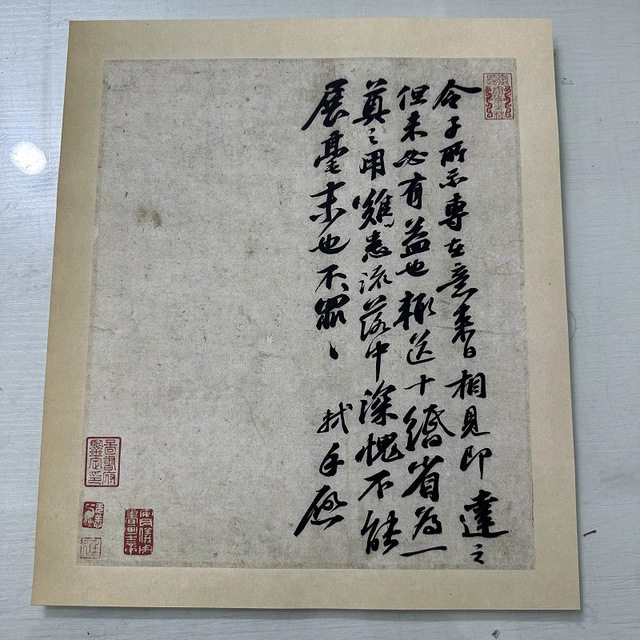 令子所示專在意來日相見即達之
但未必有益也輒送十緡省為一
奠之用雖流落中深愧不能
展毫末也不罪〻
軾手啟